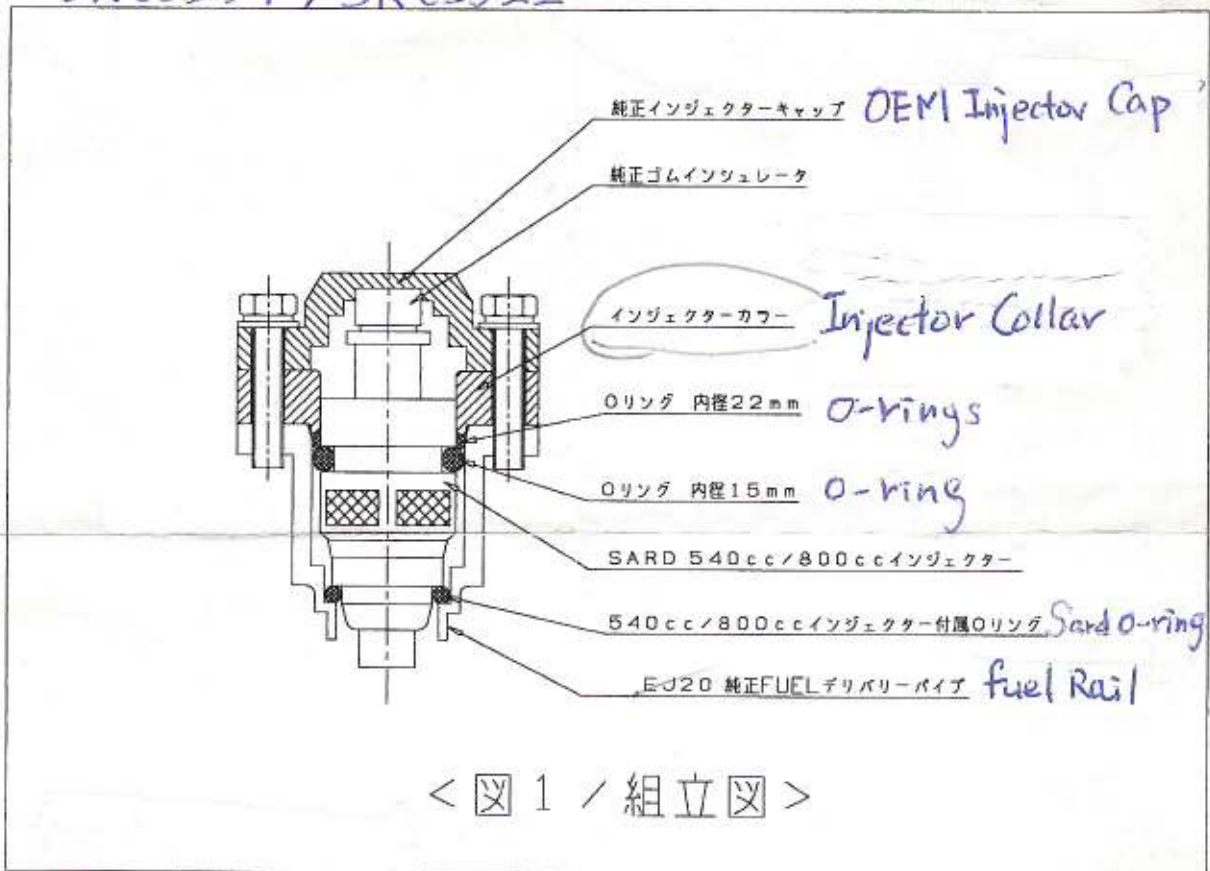 純正インジェクターキャップ OEM Injector Cap
純正ゴムインシュレータ
インジェクターカラー Injector Collar
Oリング 内径22mm O-rings
Oリング 内径15mm O-ring
SARD 540cc/800ccインジェクター
540cc/800ccインジェクター付属Oリング Sard O-ring
EJ20 純正FUELデリバリーパイプ fuel Rail
<図1/組立図>